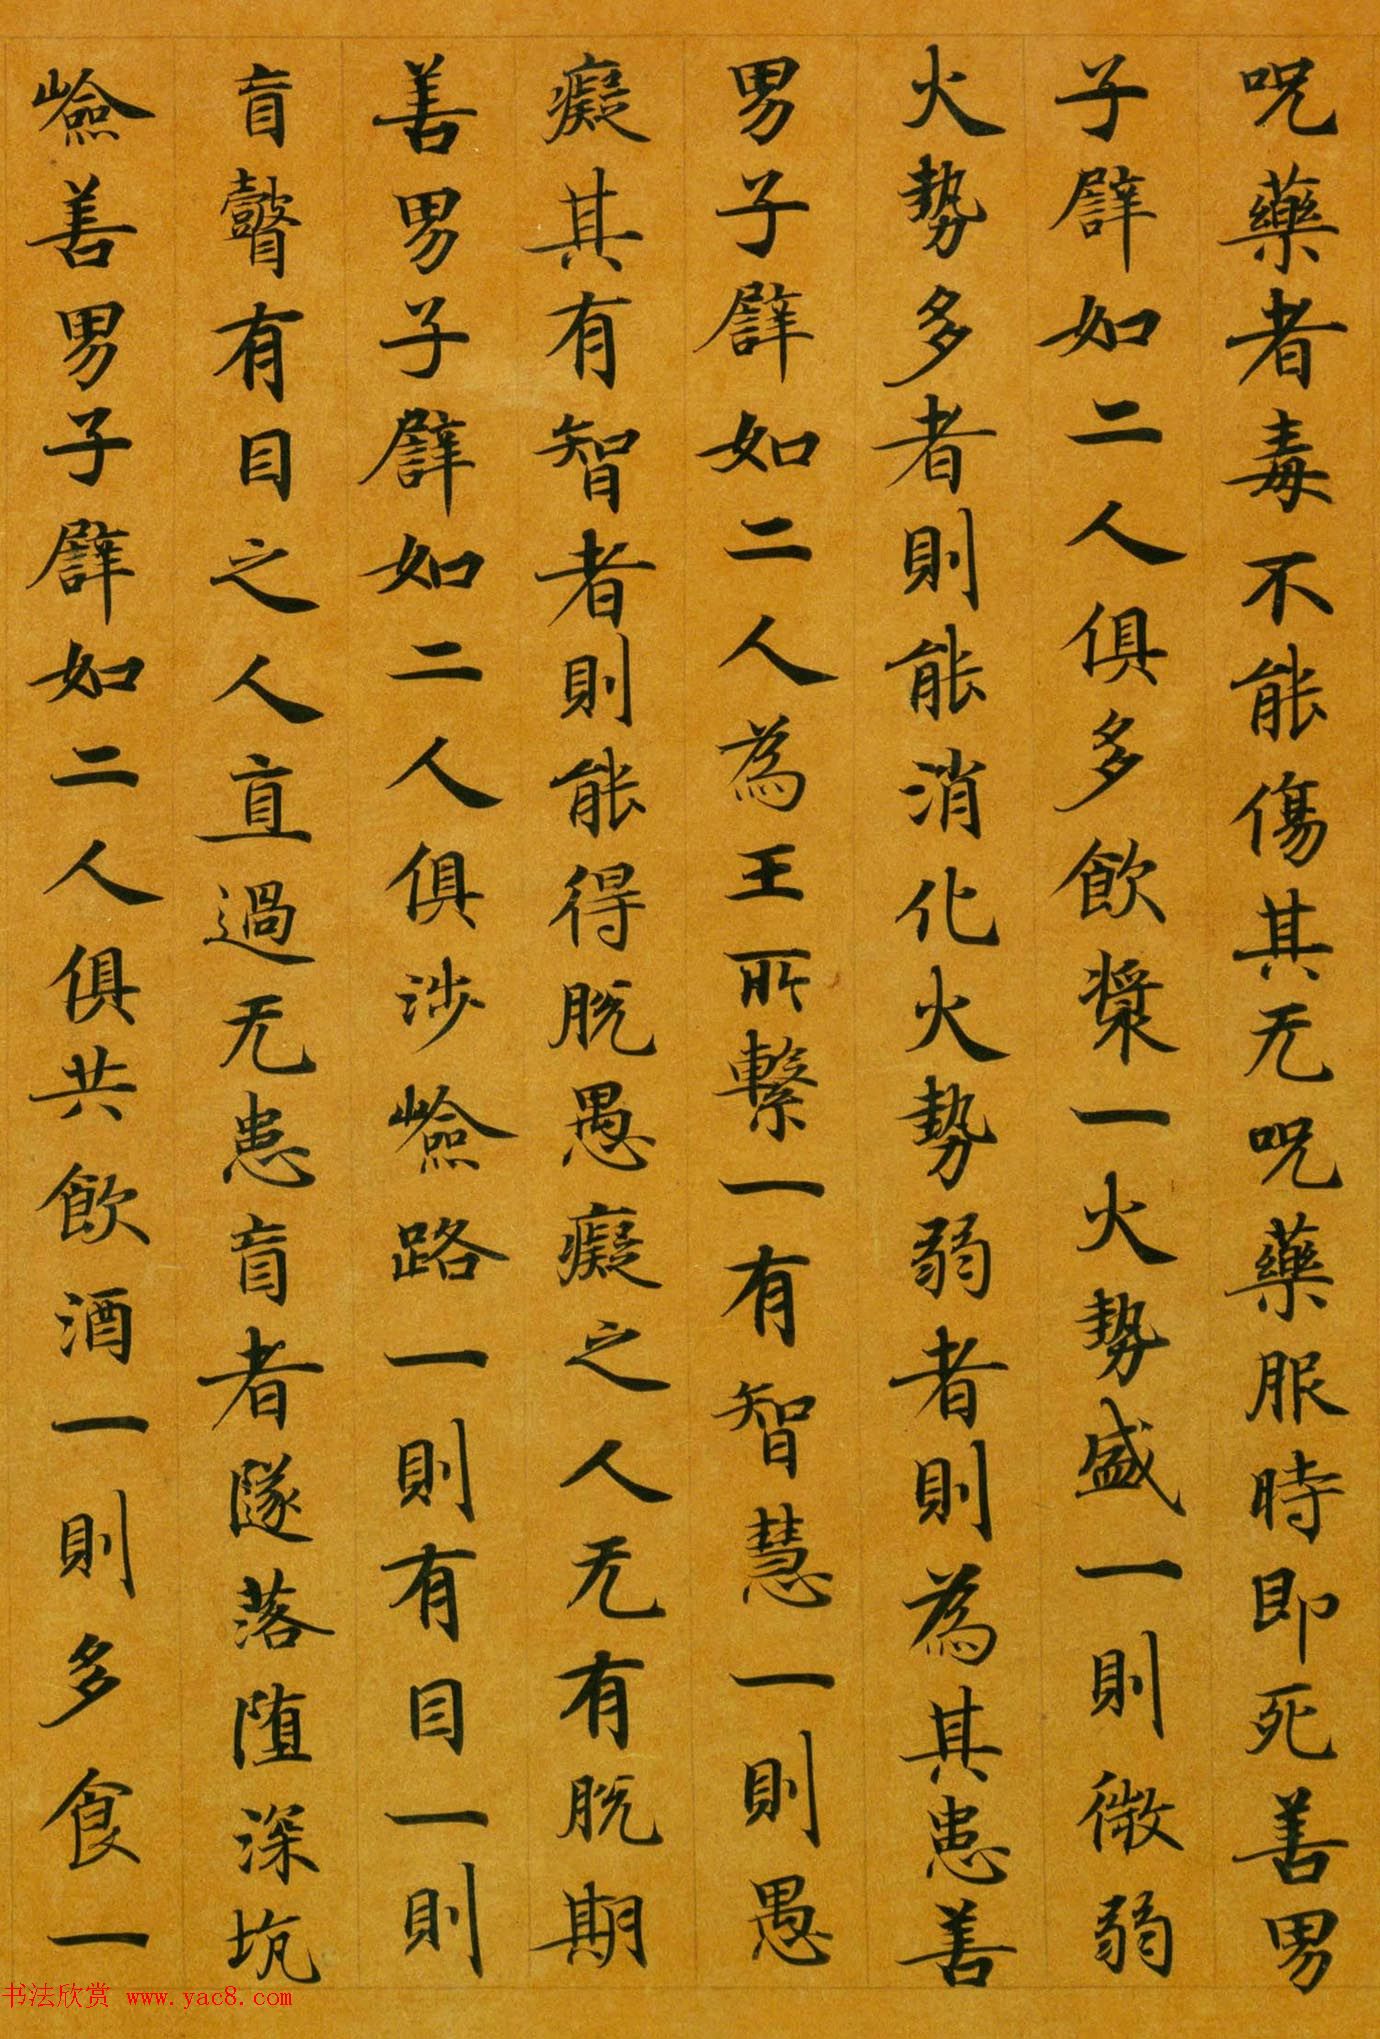 咒藥者毒不能傷其无咒藥服時即死善男
子譬如二人俱多飲漿一火勢盛一則微弱
火勢多者則能消化火勢弱者則為其患善
男子譬如二人為王所繫一有智慧一則愚
癡其有智者則能得脫愚癡之人无有脫期
善男子譬如二人俱涉嶮路一則有目一則
盲瞽有目之人直過无患盲者墜落堕深坑
嶮善男子譬如二人俱共飲酒一則多食一
书法欣赏 www.yac8.com